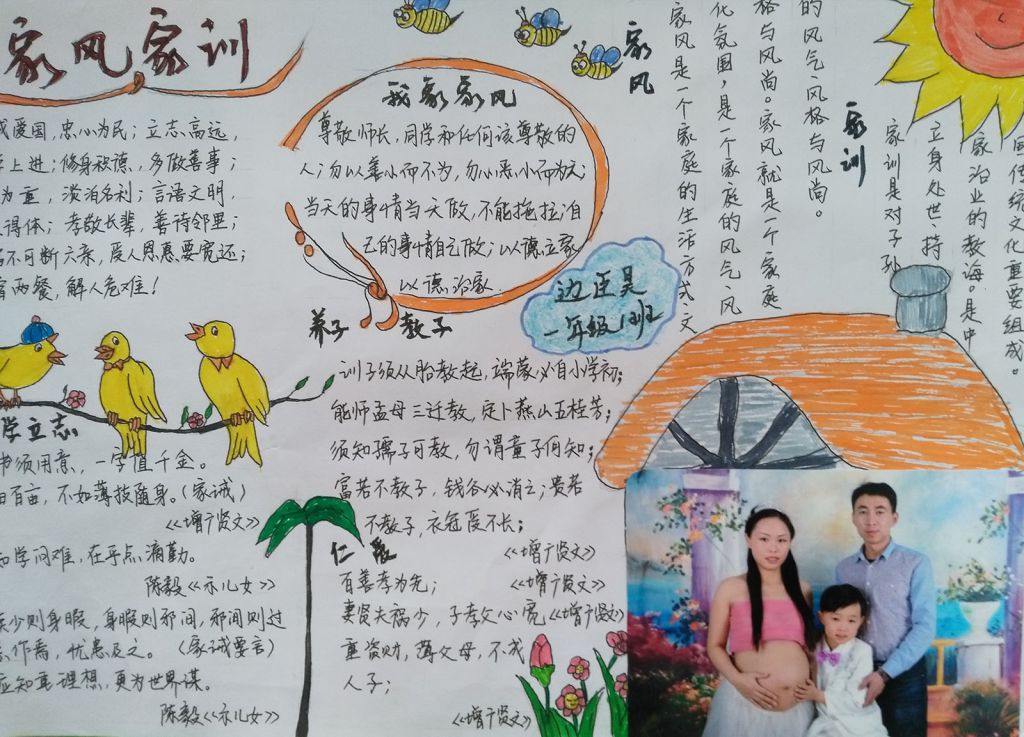 家风家训
爱国，忠心为民；立志高远，
上进；修身积德，多做善事；
为重，淡泊名利；言语文明，
得体；孝敬长辈，善待邻里；
不可断六亲，受人恩惠要宽还；
两餐，解人危难！
我家家风
尊敬师长，同学和任何该尊敬的
人；勿以善小而不为，勿以恶小而为之；
当天的事情当天做，不能拖拉自
己的事情自己做；以德立家
以德治家
家风
家风是一个家庭的生活方式、文
化氛围，是一个家庭的风气、风
格与风尚。家风就是一个家庭
的风气、风格与风尚。
家训
家训是对子孙
立身处世、持
家治业的教诲。是中
国传统文化重要组成。
一年级1班
养子 教子
训子须从胎教起，瑞蒙必自小学初；
能师孟母三迁教，定卜燕山五桂芳；
须知孺子可教，勿谓童子何知；
富若不教子，钱谷必消亡；贵若
不教子，衣冠受不长；
《增广贤文》
学立志
书须用意，一字值千金。
百亩，不如薄技随身。（家诫）
《增广贤文》
学问难，在乎点滴勤。
陈毅《示儿女》
少则身暇，身暇则邪间，邪间则过
作焉，忧患及之。（家诫要言）
应知重理想，更为世界谋。
陈毅《示儿女》
仁爱
百善孝为先；
《增广贤文》
妻贤夫祸少，子孝父心宽《增广贤文》
重资财，薄父母，不成
人子；
《增广贤文》